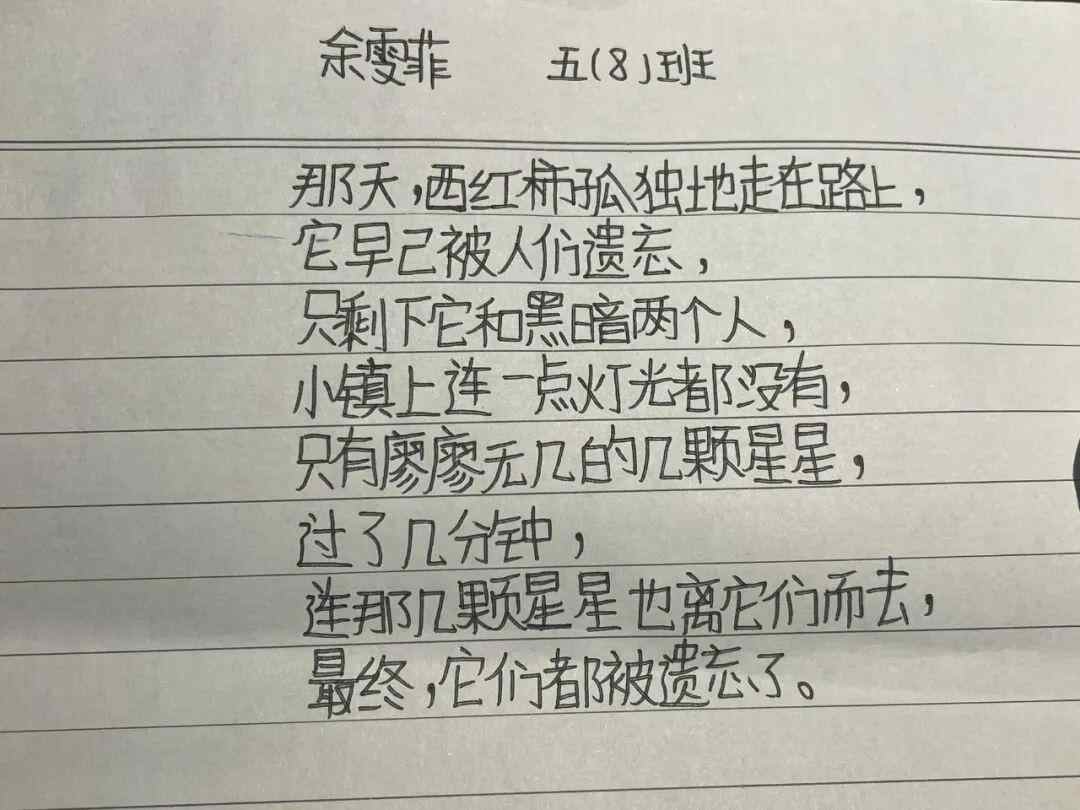 余雯菲 五(8)班
那天,西红柿孤独地走在路上,
它早己被人们遗忘,
只剩下它和黑暗两个人,
小镇上连一点灯光都没有,
只有廖廖无几的几颗星星,
过了几分钟,
连那几颗星星也离它们而去,
最终,它们都被遗忘了。